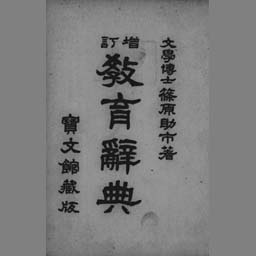 文學博士篠原助市著
增訂
教育辭典
寶文館藏版